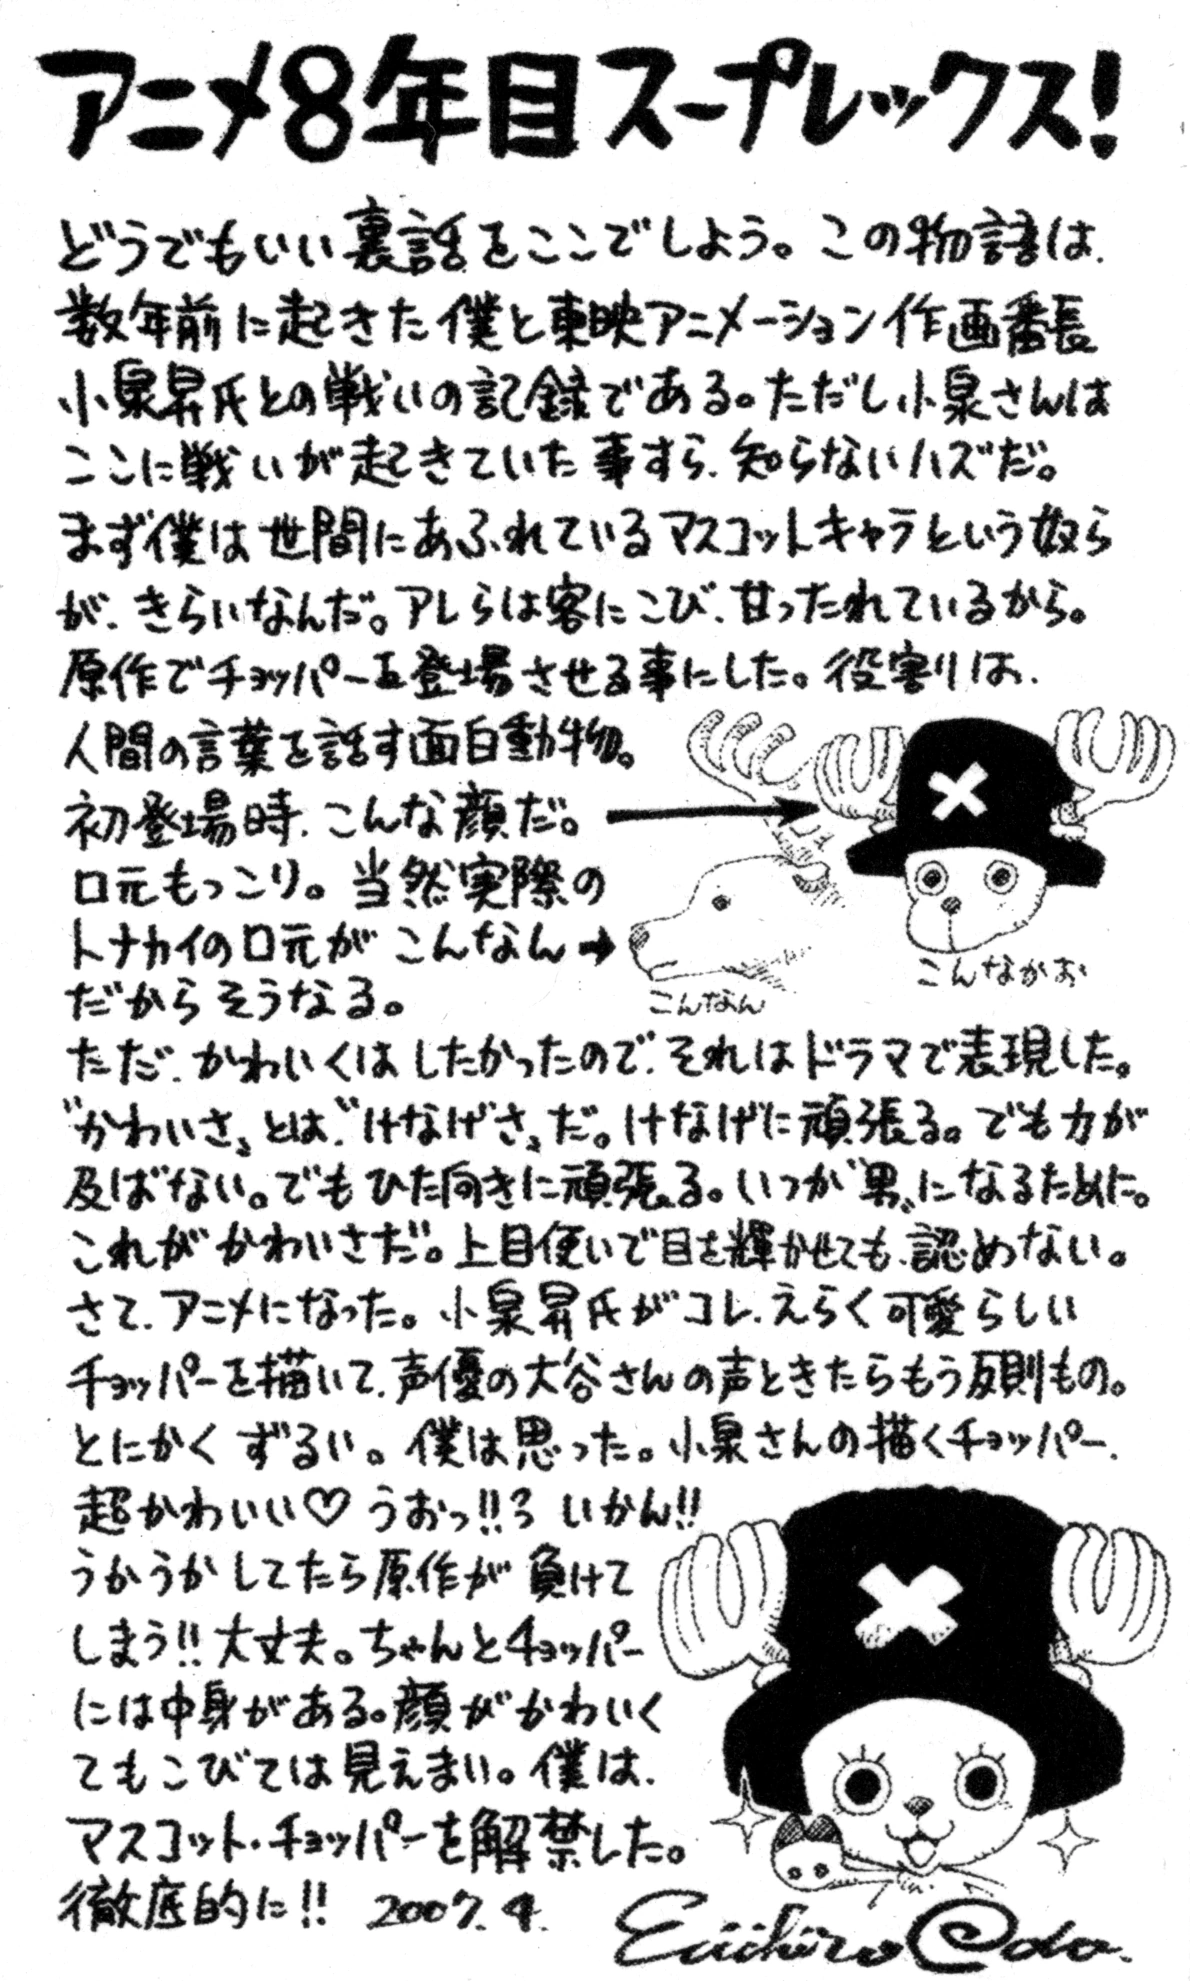 アニメ8年目スープレックス!
どうでもいい裏話をここでしよう。この物語は、
数年前に起きた僕と東映アニメーション作画番長
小泉昇氏との戦いの記録である。ただし小泉さんは
ここに戦いが起きていた事すら、知らないハズだ。
まず僕は世間にあふれているマスコットキャラという奴ら
が、きらいなんだ。アレらは客にこび、甘ったれているから。
原作でチョッパーを登場させる事にした。役割りは、
人間の言葉を話す面白動物。
初登場時、こんな顔だ。→
口元もっこり。当然実際の
トナカイの口元が こんなん→
だからそうなる。
こんなん
こんなかお
ただ、かわいくはしたかったので、それはドラマで表現した。
"かわいさ〟とは、"けなげさ〟だ。けなげに頑張る。でも力が
及ばない。でもひた向きに頑張る。いつか"男〟になるために。
これがかわいさだ。上目使いで目を輝かせても、認めない。
さて、アニメになった。小泉昇氏がコレ、えらく可愛らしい
チョッパーを描いて、声優の大谷さんの声ときたらもう反則もの。
とにかくずるい。僕は思った。小泉さんの描くチョッパー、
超かわいい♡ うおっ!!? いかん!!
うかうかしてたら原作が負けて
しまう!! 大丈夫。ちゃんとチョッパー
には中身がある。顔がかわいく
てもこびては見えまい。僕は、
マスコット・チョッパーを解禁した。
徹底的に!! 2007.4.
Eiichiro Oda.